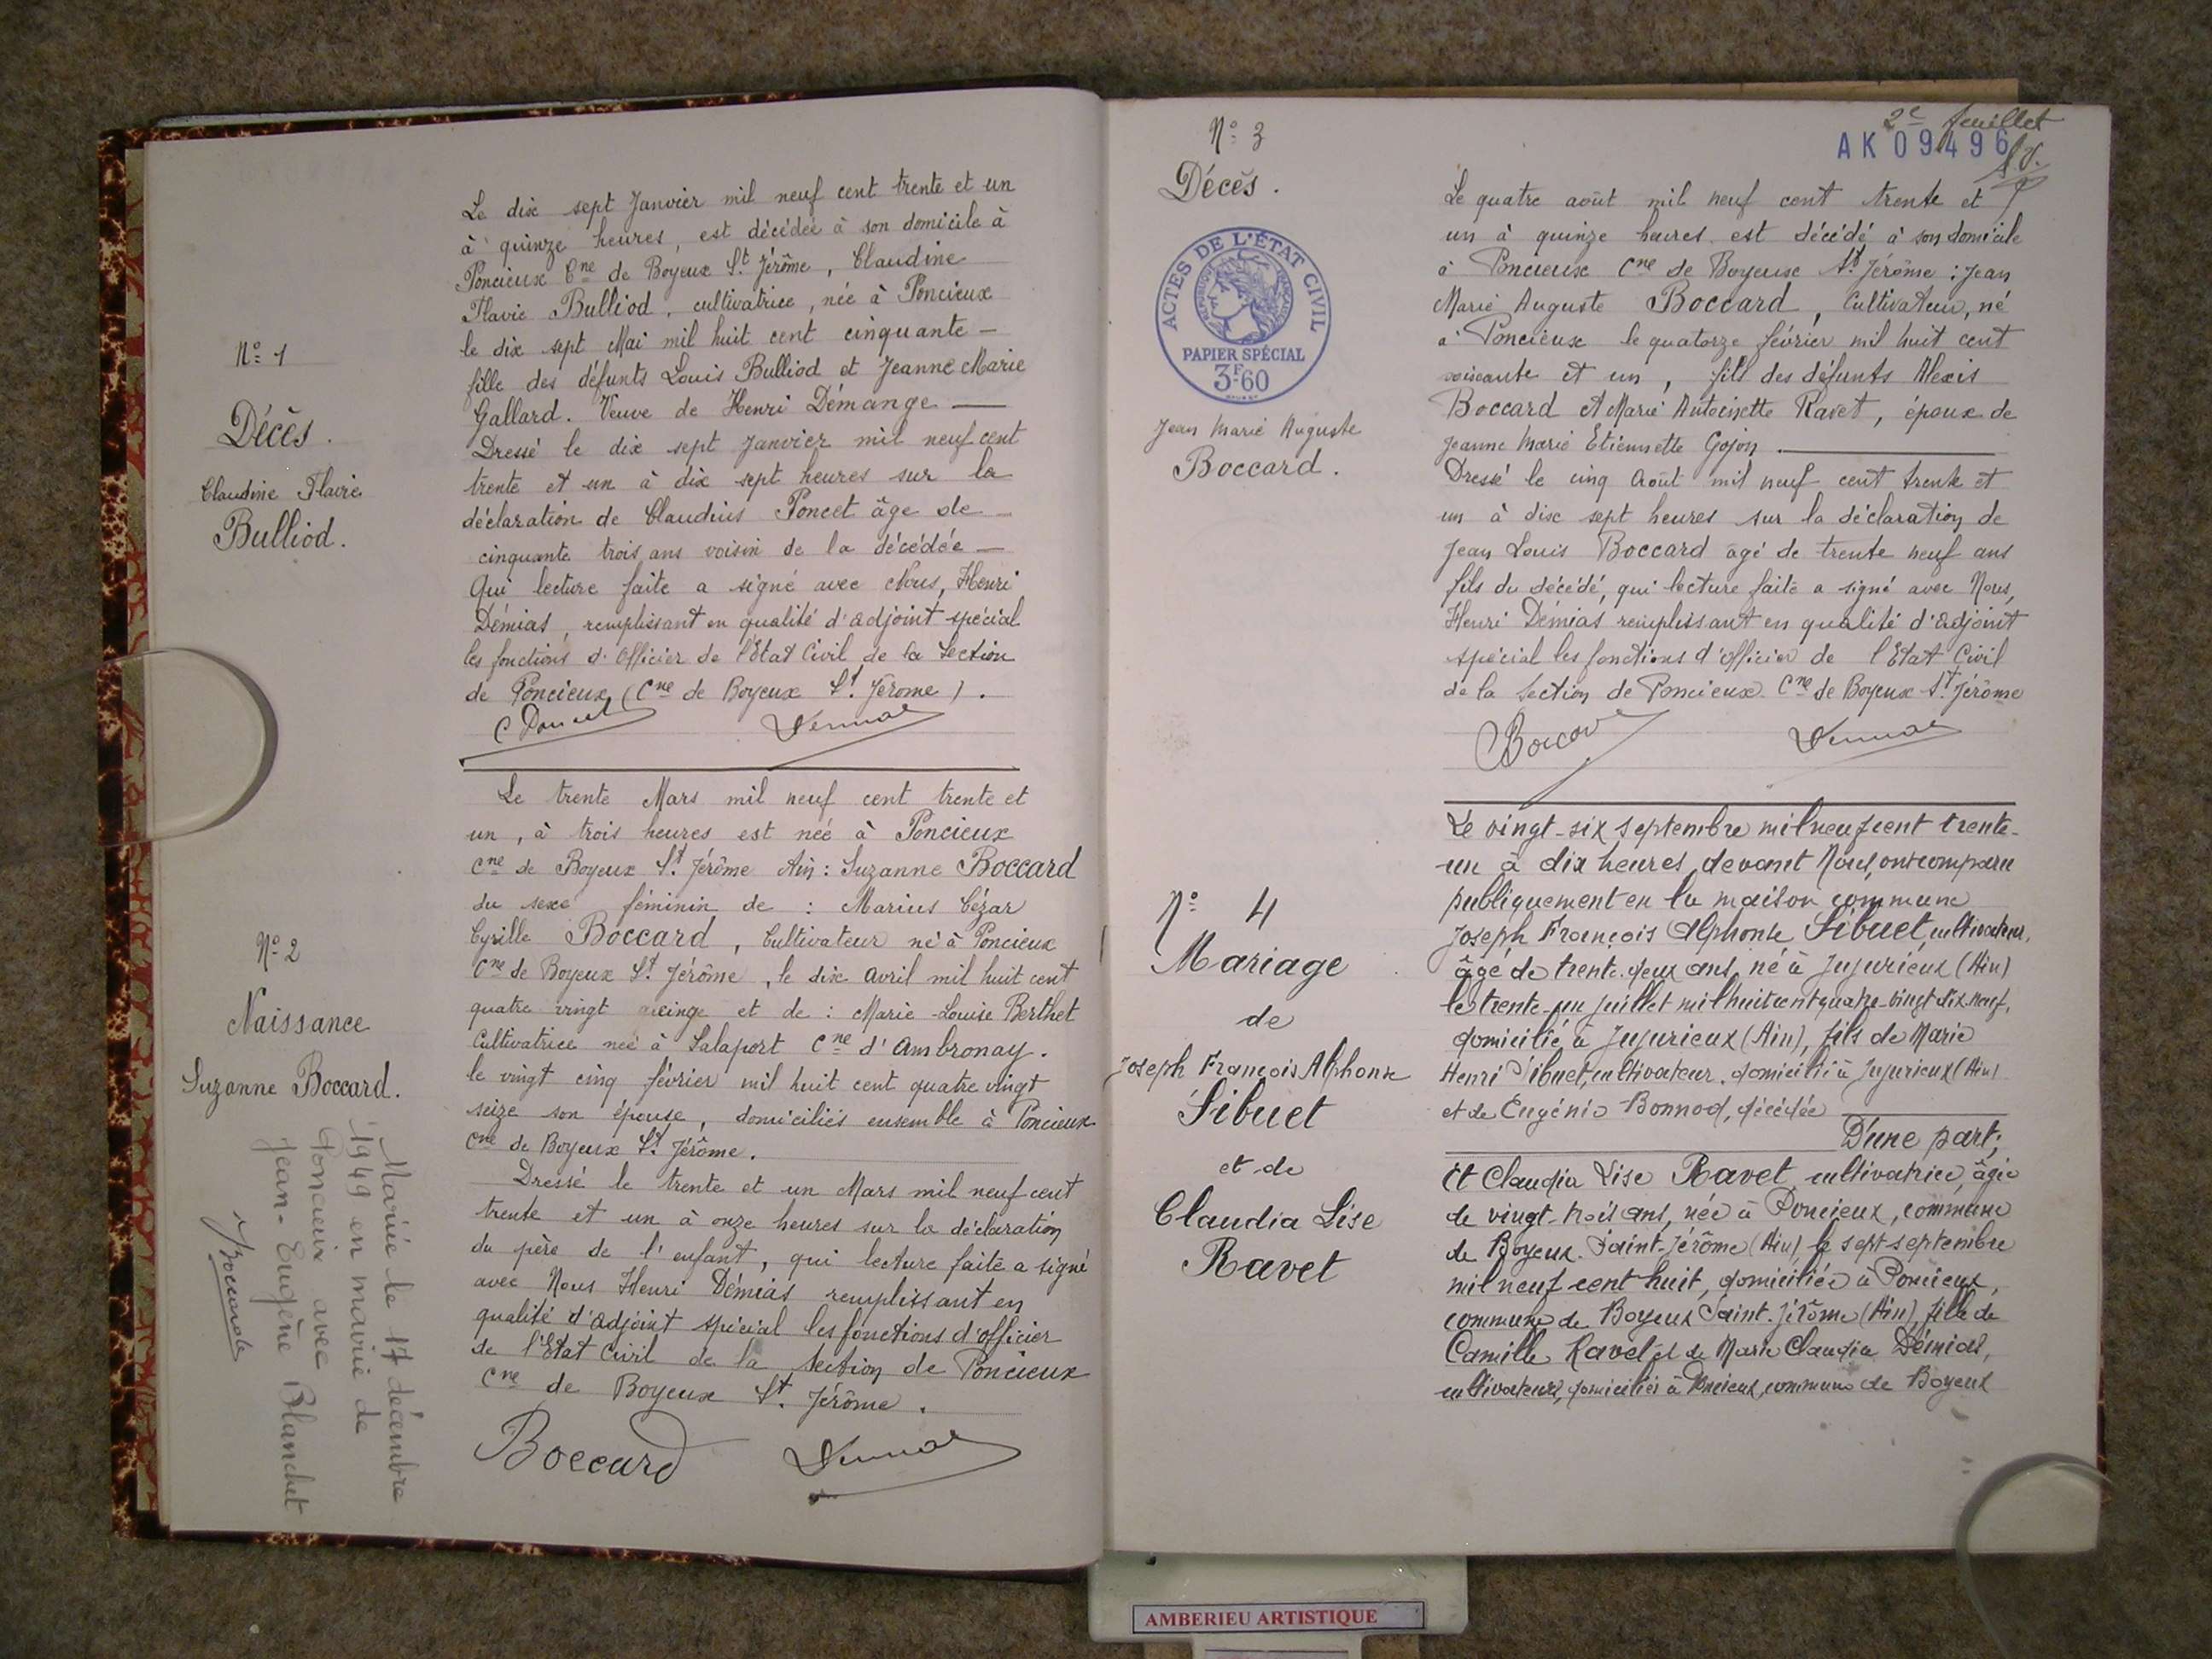 N° 1
Décès.
Claudine Flavie
Bulliod.
Le dix sept Janvier mil neuf cent trente et un
à quinze heures, est décédée à son domicile à
Poncieux Cne de Boyeux St. Jérôme, Claudine
Flavie Bulliod, cultivatrice, née à Poncieux
le dix sept Mai mil huit cent cinquante —
fille des défunts Louis Bulliod et Jeanne Marie
Gallard. Veuve de Henri Démange —
Dressé le dix sept Janvier mil neuf cent
trente et un à dix sept heures sur la
déclaration de Claudius Poncet âge de —
cinquante trois ans voisin de la décédée —
Qui lecture faite a signé avec Nous, Henri
Démias, remplissant en qualité d'adjoint spécial
les fonctions d'Officier de l'Etat Civil de la Section
de Poncieux (Cne de Boyeux St. Jérome).
N° 2
Naissance
Suzanne Boccard.
Mariée le 17 décembre
1949 en mairie de
Poncieux avec
Jean-Eugène Blanchet
Le trente Mars mil neuf cent trente et
un, à trois heures est née à Poncieux
Cne de Boyeux St. Jérôme Ain: Suzanne Boccard
du sexe féminin de : Marius Cézar
Cyrille Boccard, Cultivateur né à Poncieux
Cne de Boyeux St. Jérôme, le dix Avril mil huit cent
quatre vingt et de : Marie-Louise Berthet
Cultivatrice née à Salaport Cne d'Ambronay.
le vingt cinq février mil huit cent quatre vingt
seize son épouse, domiciliés ensemble à Poncieux
Cne de Boyeux St. Jérôme.
Dressé le trente et un Mars mil neuf cent
trente et un à onze heures sur la déclaration
du père de l'enfant, qui lecture faite a signé
avec Nous Henri Démias remplissant en
qualité d'adjoint spécial les fonctions d'officier
de l'Etat Civil de la Section de Poncieux
Cne de Boyeux St. Jérôme.
Boccard
2e feuillet
AK 09496
N° 3
Décès.
ACTES DE L'ÉTAT CIVIL
RÉPUBLIQUE FRANÇAISE
PAPIER SPÉCIAL
3F60
Jean Marie Auguste
Boccard.
Le quatre août mil neuf cent trente et
un à quinze heures est décédé à son domicile
à Poncieux Cne de Boyeux St. Jérôme : Jean
Marie Auguste Boccard, Cultivateur, né
à Poncieux le quatorze février mil huit cent
soixante et un, fils des défunts Alexis
Boccard et Marie Antoinette Ravet, époux de
Jeanne Marie Etiennette Gojon.
Dressé le cinq Août mil neuf cent trente et
un à dix sept heures sur la déclaration de
Jean Louis Boccard âgé de trente neuf ans
fils du décédé, qui lecture faite a signé avec Nous,
Henri Démias remplissant en qualité d'adjoint
spécial les fonctions d'officier de l'Etat Civil
de la Section de Poncieux Cne de Boyeux St. Jérôme
N° 4
Mariage
de
Joseph François Alphonse
Sibuet
et de
Claudia Lise
Ravet
Le vingt-six septembre mil neuf cent trente-
un à dix heures, devant Nous, ont comparu
publiquement en la maison commune
Joseph François Alphonse Sibuet, cultivateur,
âgé de trente-deux ans, né à Jujurieux (Ain)
le trente-un juillet mil huit cent quatre-vingt dix-neuf,
domicilié à Jujurieux (Ain), fils de Marie
Henri Sibuet, cultivateur, domicilié à Jujurieux (Ain)
et de Eugénie Bonnod, décédée
D'une part;
Et Claudia Lise Ravet, cultivatrice, âgée
de vingt-trois ans, née à Poncieux, commune
de Boyeux-Saint-Jérôme (Ain) le sept septembre
mil neuf cent huit, domiciliée à Poncieux,
commune de Boyeux Saint-Jérôme (Ain), fille de
Camille Ravet et de Marie Claudia Démias,
cultivateurs, domiciliés à Poncieux, commune de Boyeux
AMBERIEU ARTISTIQUE